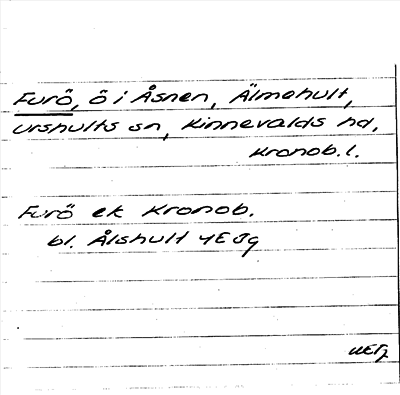 Furö, ö i Åsnen, Älmehult,
Urshults sn, Kinnevalds hd,
Kronob. l.
Furö ek Kronob.
bl. Ålshult 4E Jg